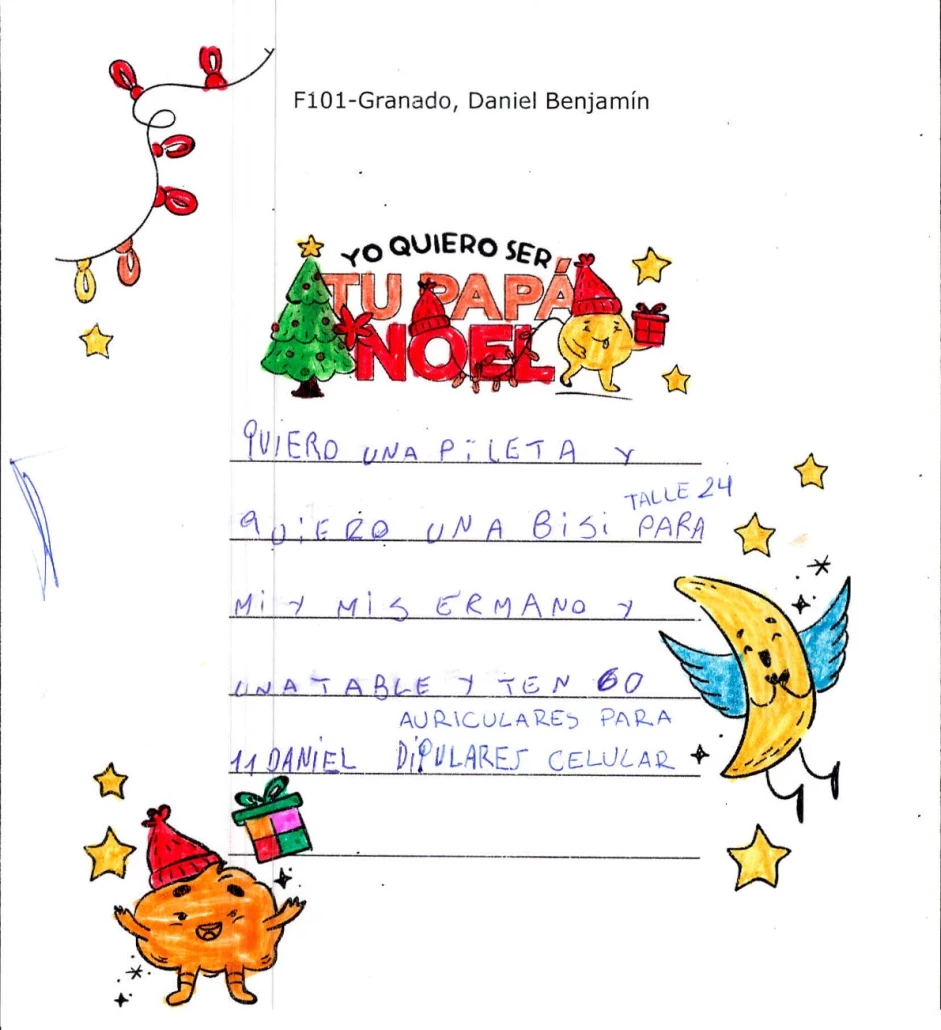 F101-Granado, Daniel Benjamín
YO QUIERO SER
TU PAPÁ
NOEL
QUIERO UNA PiLETA Y
TALLE 24
QUiERO UNA BiSi PARA
Mi Y MIS ERMANO Y
UNA TABLE Y TENGO
AURICULARES PARA
11 DANIEL DiPULARES CELULAR